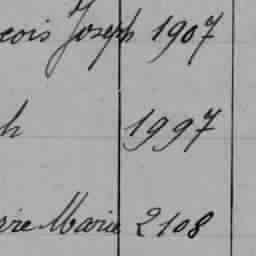 çois Joseph 1907
h 1997
rre Marie 2108